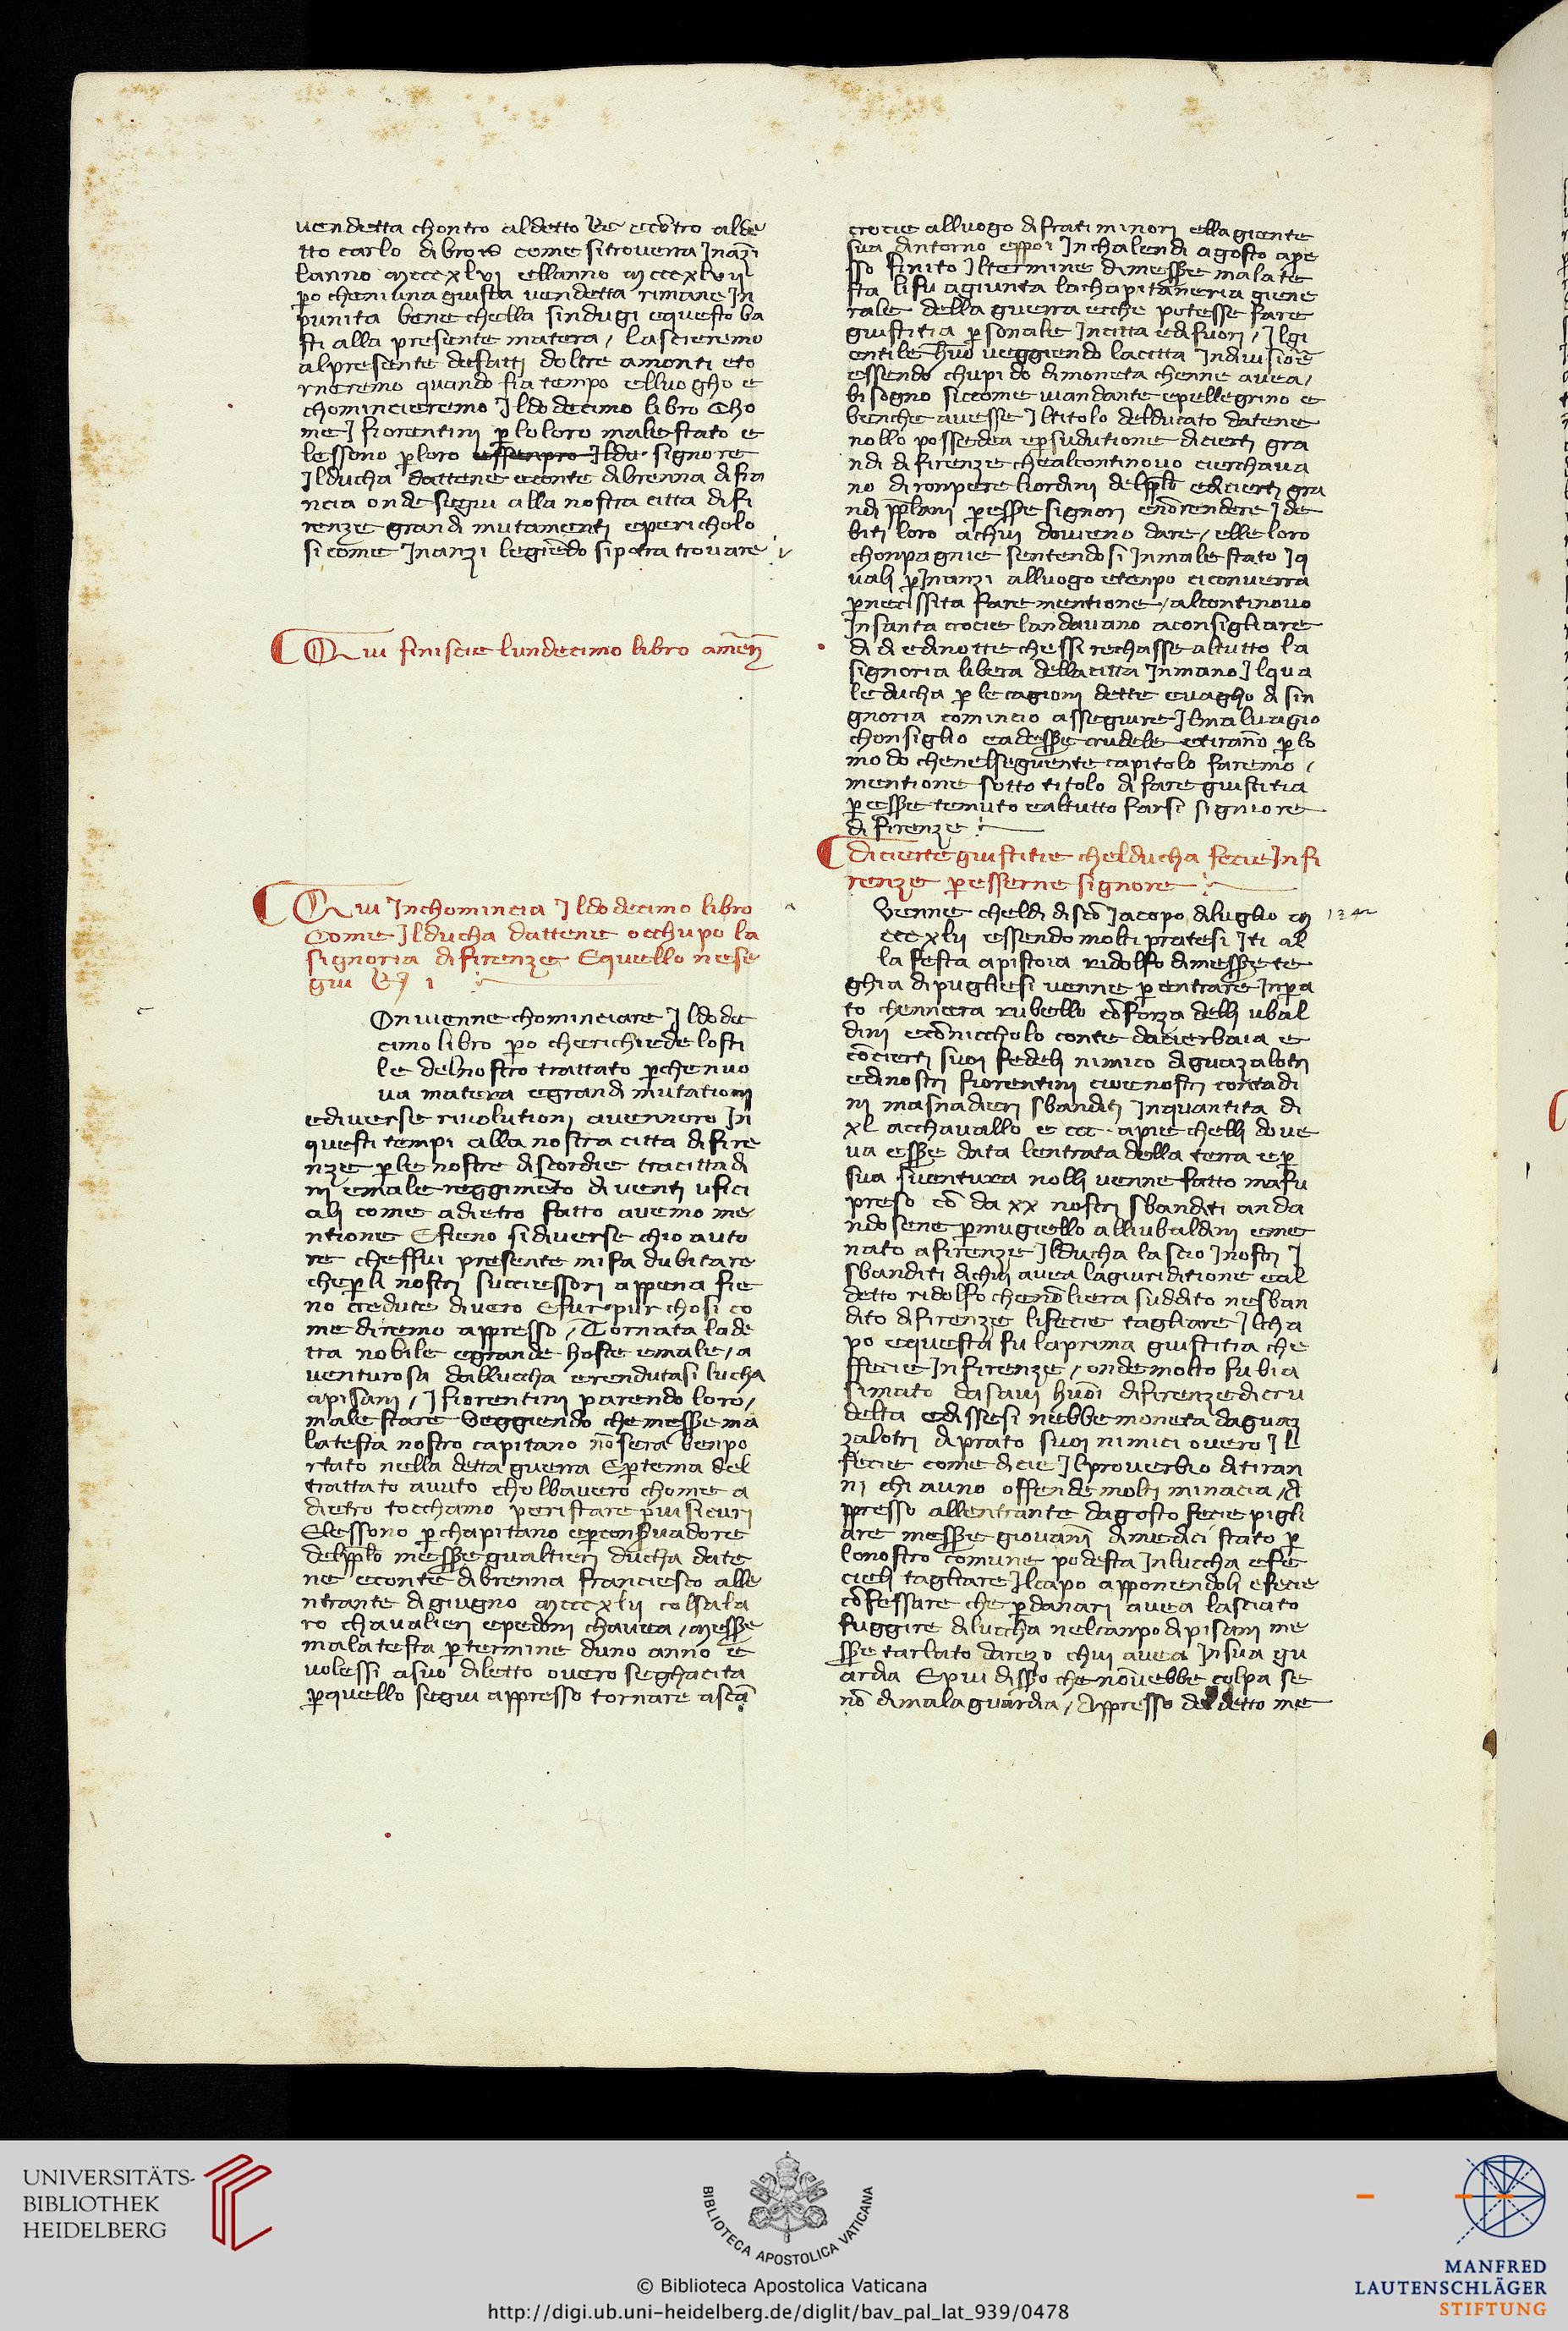 vendetta chontro aldetto Re econtro alde
tto carlo dibrois come sitroverra Jnazi
lanno mcccxlvi ellanno mcccxlvii
po cheniuna giusta vendetta rimane Jn
punita bene chella sindugi equesto ba
sti alla presente matera / Lascieremo
alpresente defatti doltre amonti eto
rneremo quando fia tempo elluogho e
chomincieremo Jldodecimo libro Cho
me J fiorentini p loloro malestato e
lessono ploro signore
Jlducha dattene econte dibrenna difra
ncia onde segui alla nostra citta difi
renze grandi mutamenti epericholo
sicome Jnanzi legiēdo sipotra trovare
Qui finiscie lundecimo libro amen
Qui Jnchomincia Jldodecimo libro
Come Jlducha dattene occhupo la
signoria difirenze Equello nese
gui Rj i
On vienne chominciare Jldode
cimo libro po cherichiede losti
le delnostro trattato pchenuo
va matera egrandi mutationi
ediverse rivolutioni avennero Jn
questi tempi alla nostra citta difire
nze ple nostre discordie tracittadi
ni emale reggimēto diventi ufici
ali come adietro fatto avemo me
ntione Efieno sidiverse chio auto
re cheffui presente mifa dubitare
chepli nostri successori appena fie
no credute divero Efur pur chosi co
me diremo appresso / Tornata lade
tta nobile egrande hoste emale / a
venturosa dalluccha erendutasi lucha
apisani / J fiorentini parendo loro /
male stare Veggiendo chemesse ma
latesta nostro capitano nō sera benpo
rtato nella detta guerra Eptema del
trattato avuto cholbavero chome a
dietro tocchamo peristare piu sicuri
Elessono pchapitano epconservadore
delpplo messe gualtieri ducha date
ne econte dibrenna franciesco alle
ntrante digiugno mcccxlii colsala
ro chavalieri epedoni chavea / messe
malatesta ptermine duno anno e
volessi asuo diletto overo seghacita
pquello segui appresso tornare asca
crocie alluogo difrati minori ellagiente
sua dintorno eppoi Jnchalendi agosto ape
sso finito Jltermine dimesse malate
sta lifu agiunta lachapitaneria giene
rale della guerra ecche potesse fare
giustitia psonale Jncitta edifuori / Jlgi
entile huō veggiendo lacitta Jndivisione
essendo chupido dimoneta chenne avea /
bisogno siccome viandante epellegrino e
benche avesse Jltitolo delducato datene
nollo possedea epsudutione dicierti gra
ndi difirenze chealcontinovo cierchava
no dironpere liordini delpplo edicierti gra
ndi pplani pesse signori enōrendere J de
biti loro achui dovieno dare / elle loro
chonpagnie sentendosi Jnmalestato J q
uali pJnanzi alluogo etenpo ciconverra
pnecissita fare mentione / alcontinovo
Jnsanta crocie landavano aconsigliare
didi edinotte chessi rechasse altutto la
signoria libera dellacitta Jnmano Jlqua
le ducha p le cagioni dette evagho di sin
gnoria comincio asseguire Jlmalvagio
chonsiglio eadesse crudele etiranō plo
modo chenelseguente capitolo faremo /
mentione sotto titolo di fare giustitia
pesse temuto ealtutto farsi signiore
di firenze
dicierte giustitie chelducha fecie Jnfi
renze pesserne signore
Venne cheldi discō Jacopo diluglio m
1342
cccxlii essendo molti pratesi Jti al
la festa apistoia ridolfo dimesse te
ghia dipugliesi venne pentrare Jnpra
to chennera rubello cōforza delli ubal
dini econiccholo conte dacierbaia e
cōcierti suoi fedeli nimico diguazalotri
edinostri fiorentini cioe nostri contadi
ni masnadieri sbanditi Jnquantita di
xl acchavallo e ccc apie chelli dove
va esse data lentrata della terra ep
sua sventura nolli venne fatto mafu
preso cō da xx nostri sbanditi anda
ndosene pmugiello alliubaldini eme
nato afirenze Jlducha lascio Jnostri J
sbanditi dichui avea lagiuriditione eal
detto ridolfo chenōliera suddito nesban
dito difirenze lifecie tagliare Jlcha
po equesta fu laprima giustitia che
ffecie Jnfirenze / ondemolto fu bia
simato dasavi huōi difirenze dicru
delta edissesi nebbe moneta daguaz
zalotri diprato suoi nimici overo Jl
fecie come dicie Jlproverbio ditiran
ni chi auno offende molti minacia / A
ppresso allentrante dagosto fecie pigli
are messe giovanī dimedici stato p
lonostro comune podesta Jnluccha efe
cieli tagliare Jlcapo apponendoli efecie
cōfessare che pdanari avea lasciato
fuggire diluccha nelcanpo dipisani me
sse tarlato darezo chui avea Jnsua gu
ardia Epiu disso che nōvebbe colpa se
nō dimala guardia / Appresso deldetto me
UNIVERSITÄTS-
BIBLIOTHEK
HEIDELBERG
BIBLIOTECA APOSTOLICA VATICANA
© Biblioteca Apostolica Vaticana
http://digi.ub.uni-heidelberg.de/diglit/bav_pal_lat_939/0478
MANFRED
LAUTENSCHLÄGER
STIFTUNG